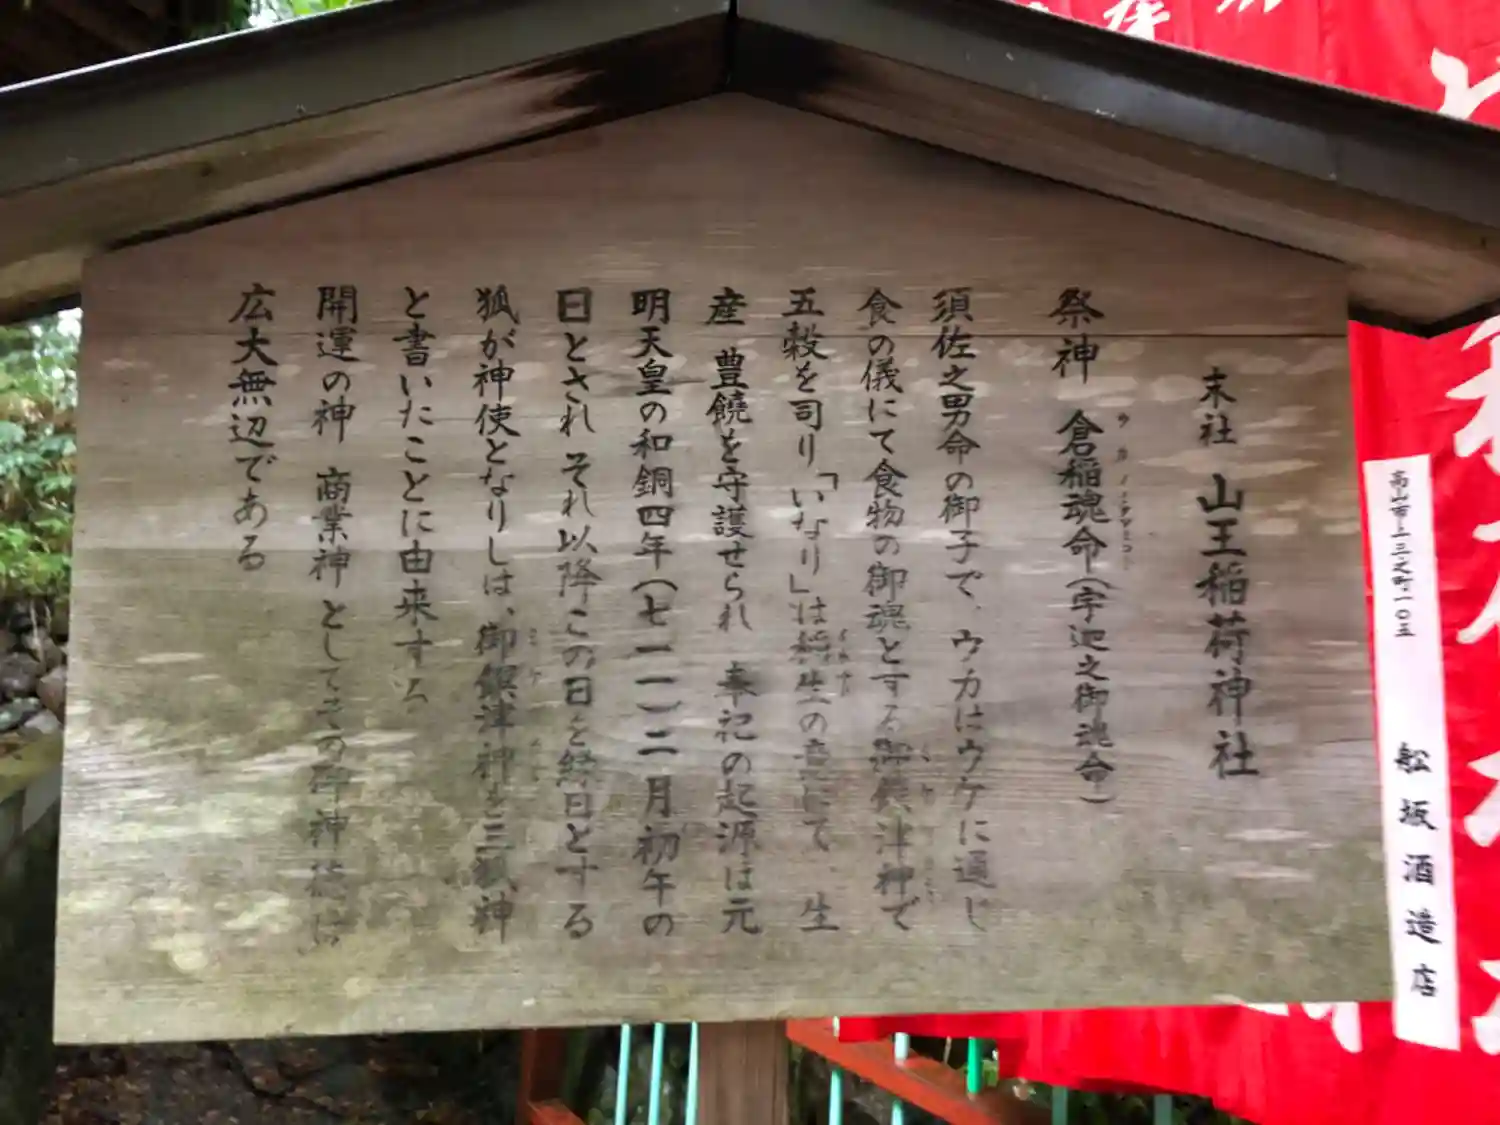 末社 山王稲荷神社
祭神 倉稲魂命(宇迦之御魂命)
ウカノミタマノミコト
須佐之男命の御子で、ウカはウケに通じ
食の儀にて食物の御魂とする御饌津神で
五穀を司り「いなり」は稲生の意にて 生
産 豊饒を守護せられ 奉祀の起源は元
明天皇の和銅四年(七一一)二月初午の
日とされ それ以降この日を縁日とする
狐が神使となりしは、御饌津神を三狐神
と書いたことに由来する
開運の神 商業神としてその御神徳は
広大無辺である
高山市上三之町一〇五
舩坂酒造店